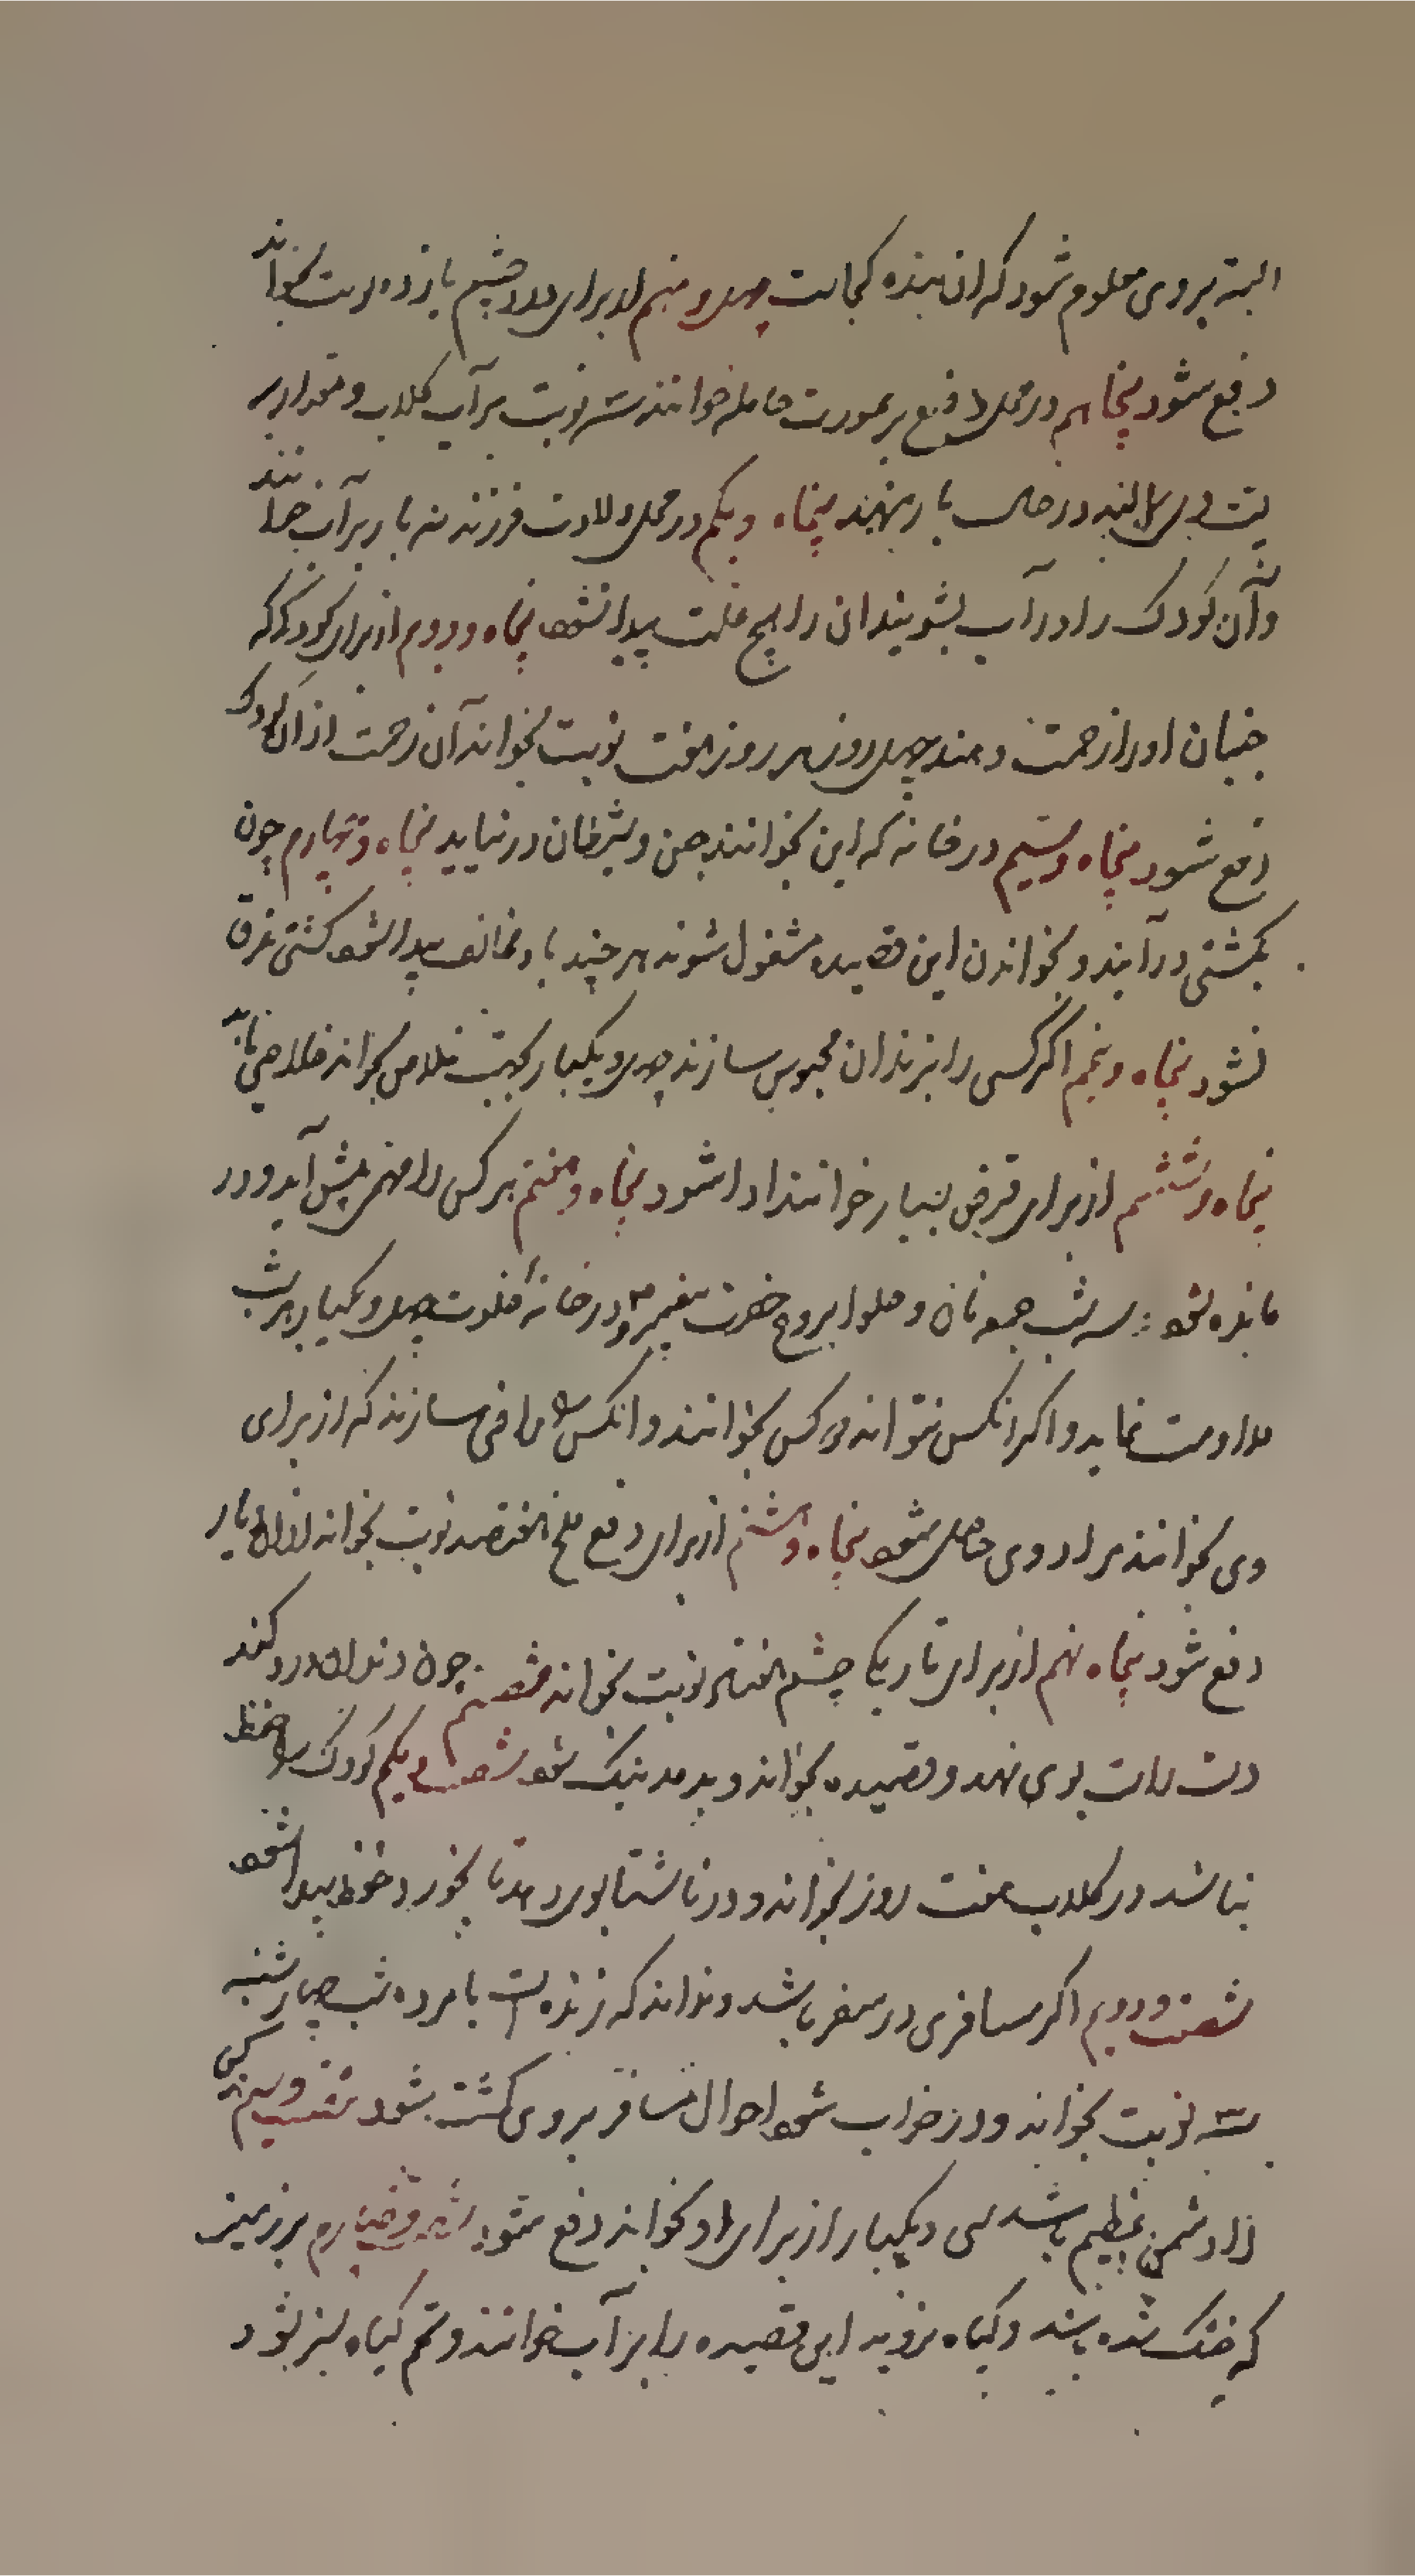 البته بروی معلوم شود که ان بنده کجاست چهل و نهم از برای درد چشم یازده نوبت بخواند
دفع شود پنجاهم در محل وضع بر عورت حامله خوانند سه نوبت بر آب گلاب و مقدار
در حال بار بنهد پنجاه و یکم در محل ولادت فرزند سه بار بر آب خوانند
وآن کودک را در آب بشویند ان را هیچ علت پیدا نشود پنجاه و دویم از برای کودکی که
جنیان او را زحمت دهند چهل روز هر روز هفت نوبت بخواند آن زحمت از ان کودک
دفع شود پنجاه و سیم در خانه که این بخوانند جن و شیطان در نیاید پنجاه و چهارم چون
بکشتی در آیند و بخواندن این قصیده مشغول شوند هر چند باد مخالف پیدا شود کشتی غرق
نشود پنجاه و پنجم اگر کسی را بزندان محبوس سازند چهل و یکبار بجهت خلاص بخواند خلاصی یابد
پنجاه و ششم از برای قرض بسیار خوانند ادا شود پنجاه و هفتم هر کس را مهمی پیش آید و در
مانده شود سه شب جمعه نان و حلوا بروح حضرت پیغمبر در خانه خلوت چهل و یکبار هر شب
مداومت نماید و اگر انکس نتواند کس بخوانند و انکس را راضی سازند که از برای
وی بخوانند مراد وی حاصل شود پنجاه و هشتم از برای دفع ملخ هفتصد نوبت بخواند
دفع شود پنجاه نهم از برای تاریکی چشم هفتاد نوبت بخواند شصتم چون دندان درد کند
دست راست بوی نهد و قصیده بخواند و بدمد نیک شود شصت و یکم کودک را حفظ
نباشد در گلاب هفت روز بخواند و در ناشتا بوی دهد تا بخورد حفظ پیدا شود
شصت و دویم اگر مسافری در سفر باشد و نداند که زنده است یا مرده شب چهارشنبه
سه نوبت بخواند و در خواب شود احوال مسافر بروی گشته شود شصت و سیم هر کسی
را دشمن عظیم باشد سی و یکبار از برای او بخواند دفع شود شصت و چهارم بر زمین
که خشک شده باشد و گیاه نروید این قصیده را بر آب خوانند و تخم گیاه سبز شود